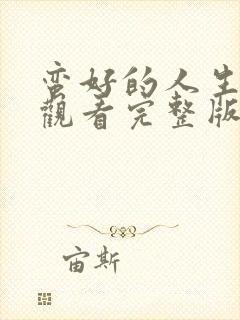 蛮好的人生
觀看完整版
宙斯